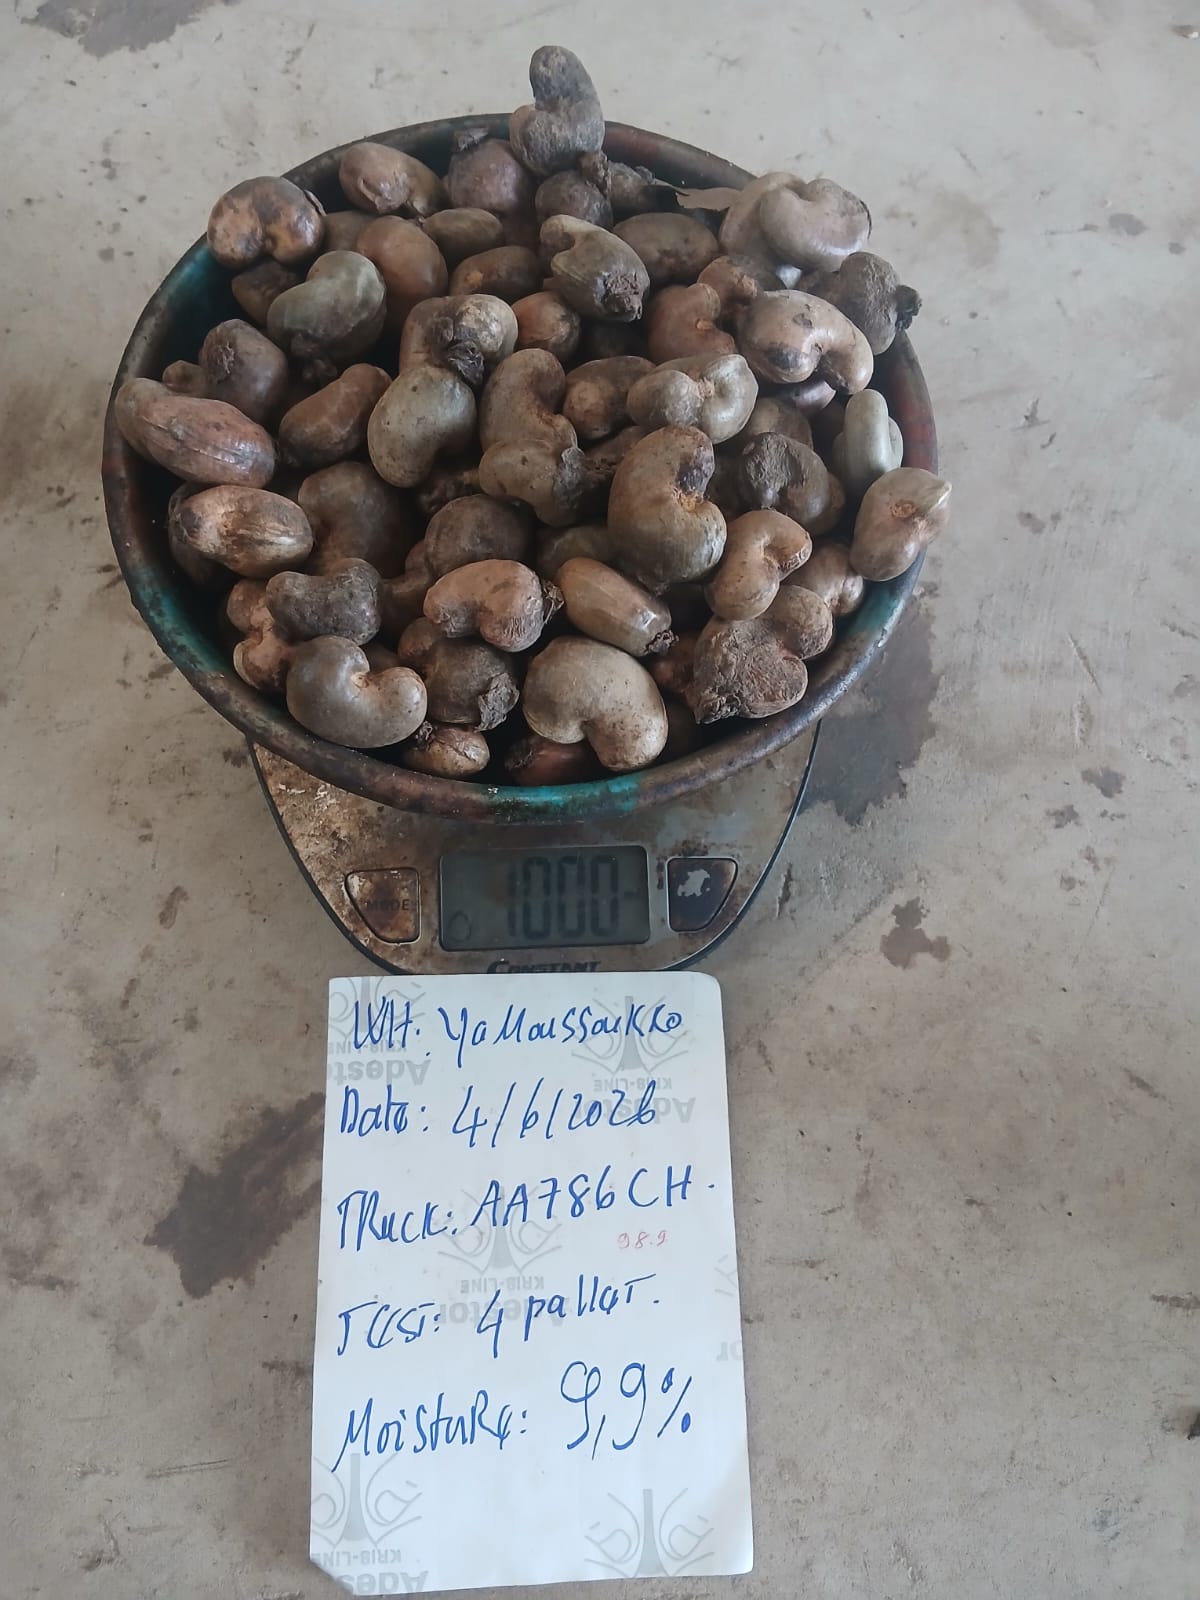 MODE
1000
CONSTANT
WH: YaMoussoukro
Date: 4/6/2026
TRuck: AA786CH.
98.2
TEST: 4 pallet.
MoistuRe: 9,9%
KRIB-LINE
Adestor